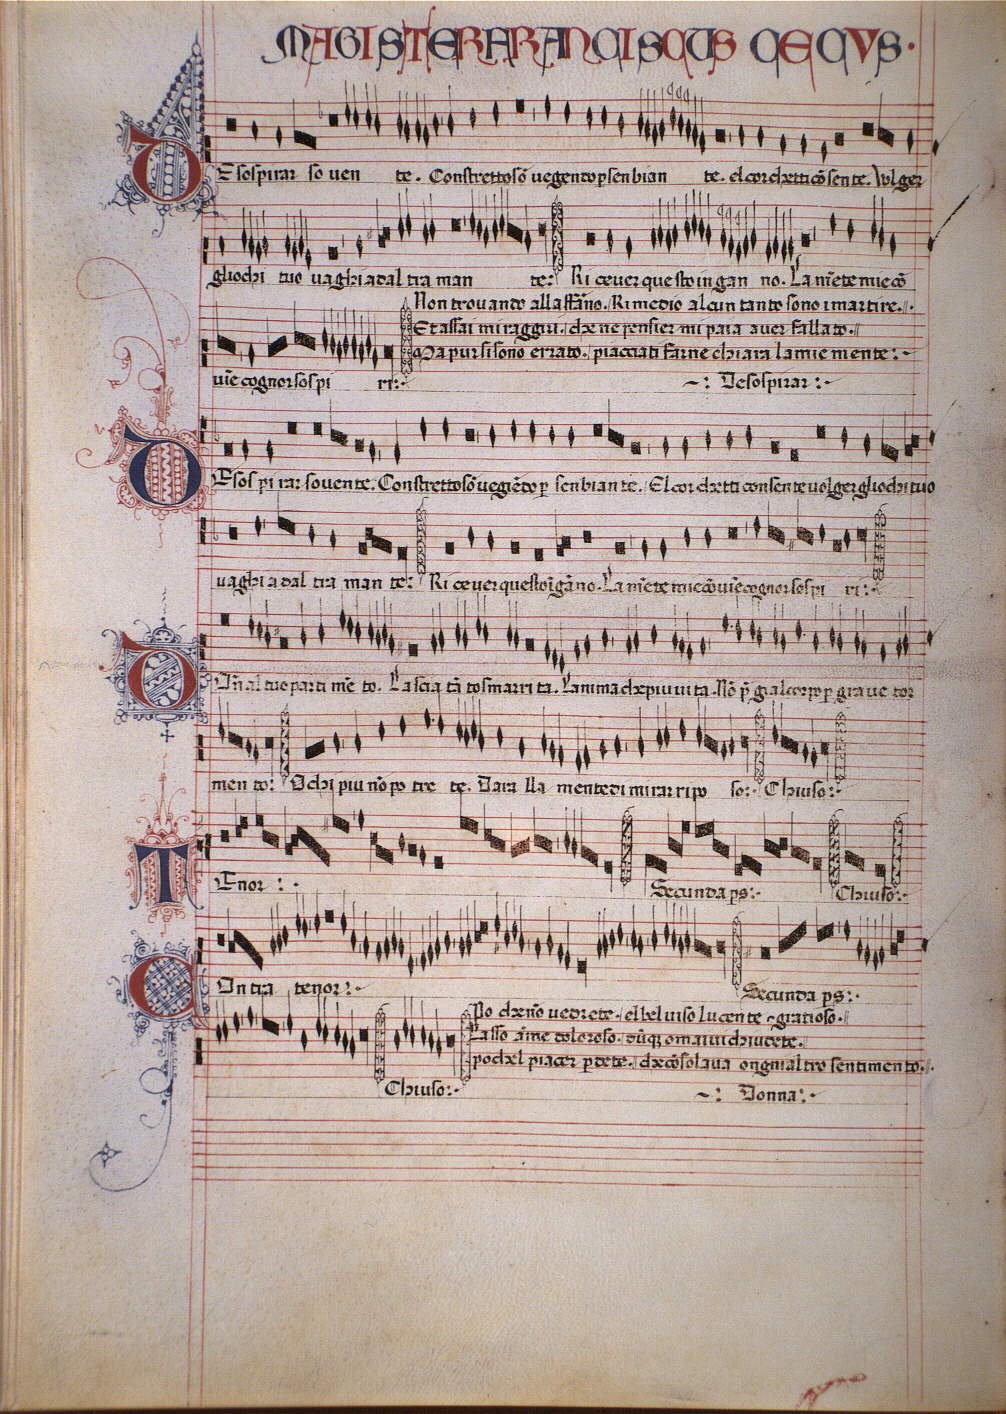 MAGISTER FRANCISCUS CECVS.
DE sospirar so uen te. Constrettosõ uegendo p senbian te. el cor chetti cõsente. Volger
gliochi tuo uaghi a dal tra man te: Riceuer questo ingan no. La mẽte mie cõ
Non trouando alla ffãno. Rimedio alcun tanto sono i martire.
Et assai mi raggiui. che ne pensier mi paia auer fallato.
Ma pur si sono errato. piacciati farne chiara la mie mente:
uiẽ cognor sospi ri: De sospirar:
DE sos pi rar souente. Constrettosõ uegẽdo p senbiante. El cor chetti consente uolger gliochi tuo
uaghi a dal tra man te: Riceuer questo ĩgãno. La mẽte mie cõuiẽ cognor sospi ri:
La scia tã to smarri ta. Lanima che piu ui ta. Nõ p gia l corpo p graue tor
men to: Ochi piu nõ po tre te. Dara lla mente di mirar ripo so: Chiuso:
TEnor: Secunda ps: Chiuso:
COntra tenor: Secunda ps:
Po che nõ uedrete. el bel uiso lucente gratioso.
Lasso ame doloroso. omai ui chiudete.
po chel piacer pdete. che cõsolaua ongni altro sentimento.
Chiuso: Donna: